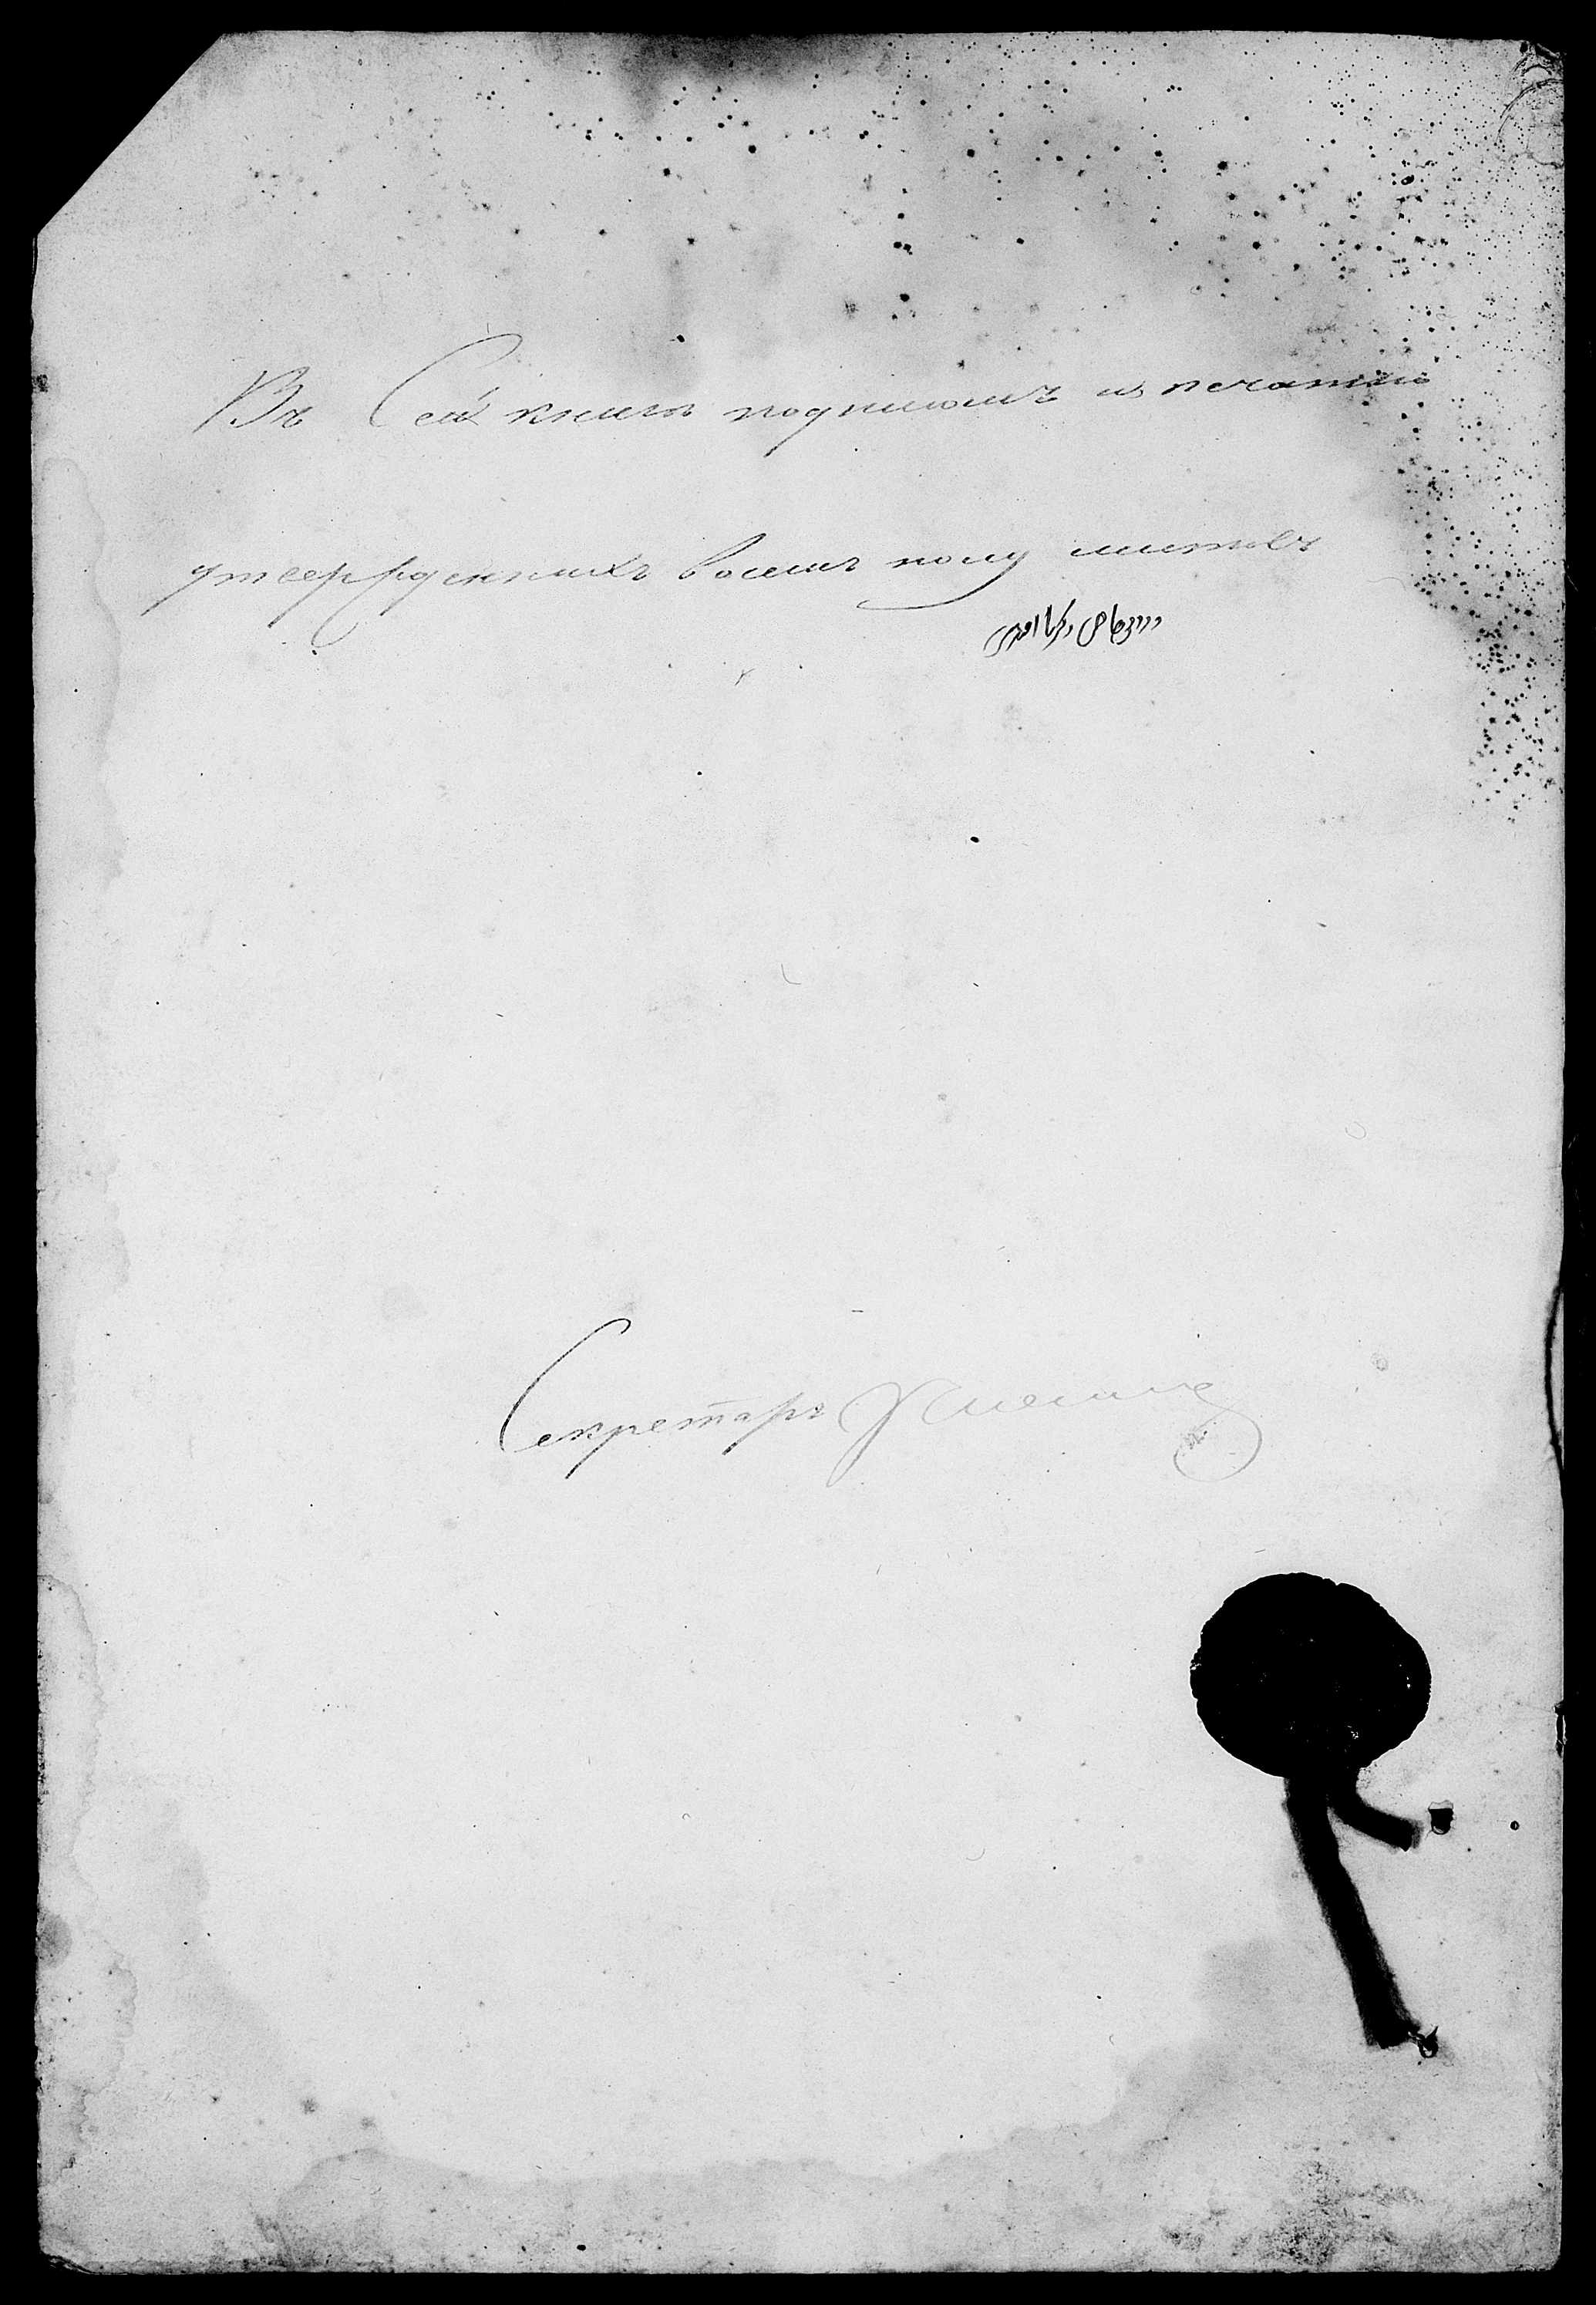 Въ Сей книги подписомъ и печатью
утвержденныхъ восемь полу листовъ
Секретарь